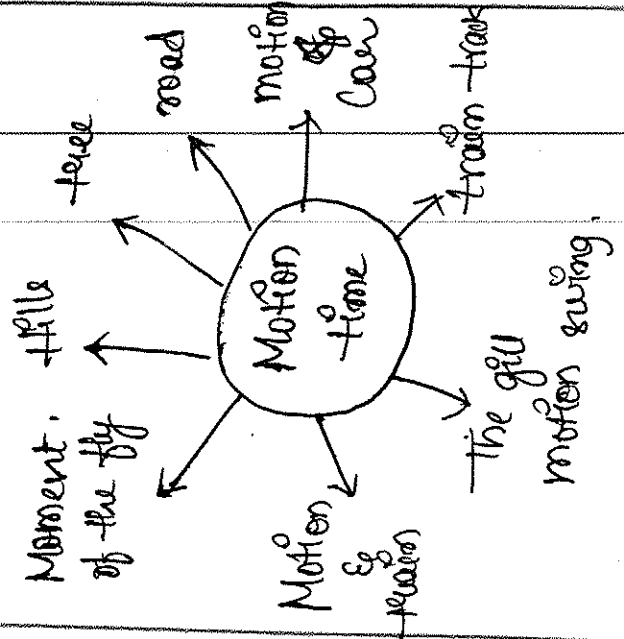 Motion
time
Moment.
of the fly
Hills
tree
road
motion
of
Car
train track
the gill
motion swing.
Motion
of
train